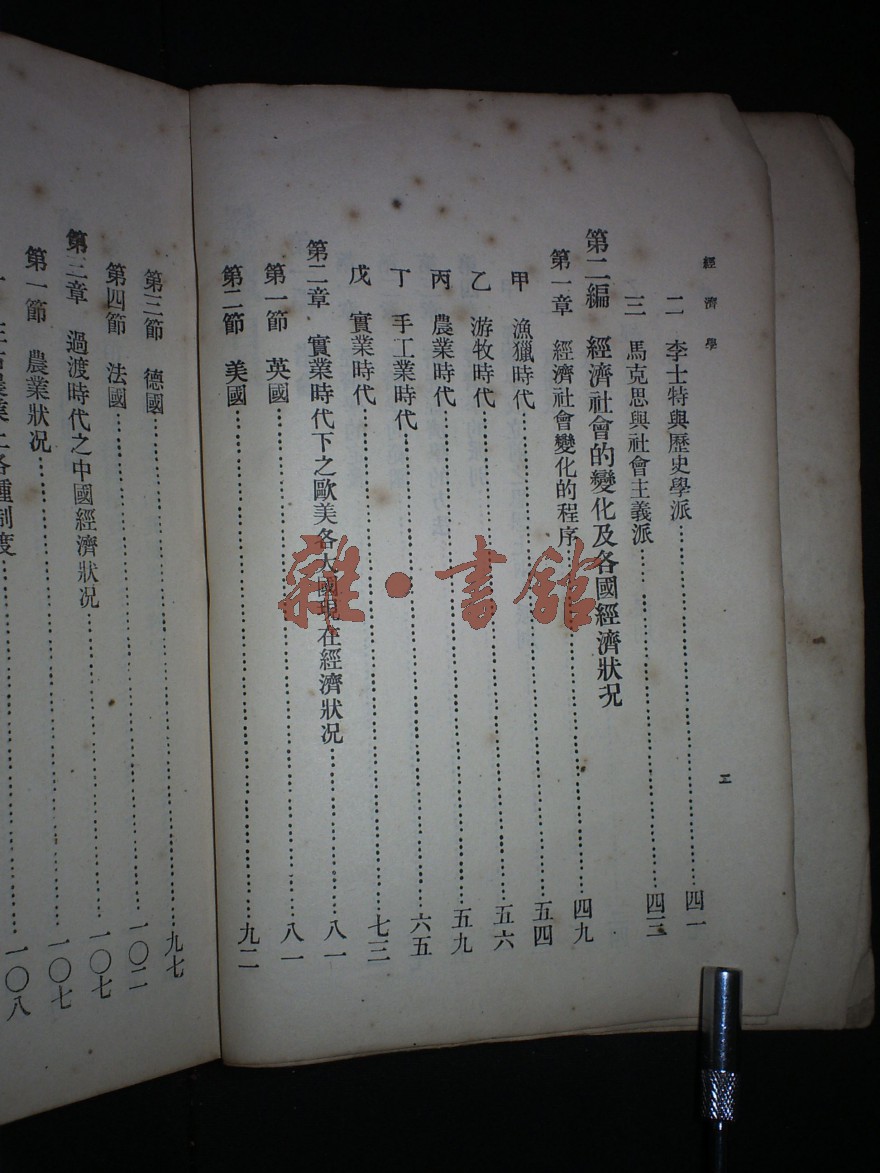 經濟學
二
二 李士特與歷史學派……四一
三 馬克思與社會主義派……四三
第二編 經濟社會的變化及各國經濟狀況
第一章 經濟社會變化的程序……四九
甲 漁獵時代……五四
乙 游牧時代……五六
丙 農業時代……五九
丁 手工業時代……六五
戊 實業時代……七三
第二章 實業時代下之歐美各大國現在經濟狀況……八一
第一節 英國……八一
第二節 美國……九二
第三節 德國……九七
第四節 法國……一〇二
第三章 過渡時代之中國經濟狀况……一〇七
第一節 農業狀况……一〇七
農業上各種制度……一〇八
雜·書館